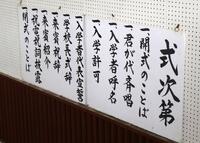 式次第
一開式のことば
一君が代斉唱
一入学者呼名
一入学許可
一入学者代表宣誓
一学校長式辞
一来賓祝辞
一来賓紹介
一祝電祝詞披露
一閉式のことば